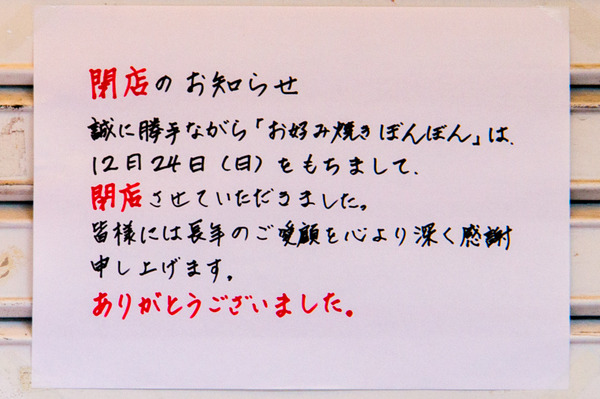 閉店のお知らせ
誠に勝手ながら「お好み焼きぼんぼん」は、
12月24日(日)をもちまして、
閉店させていただきました。
皆様には長年のご愛顧を心より深く感謝
申し上げます。
ありがとうございました。